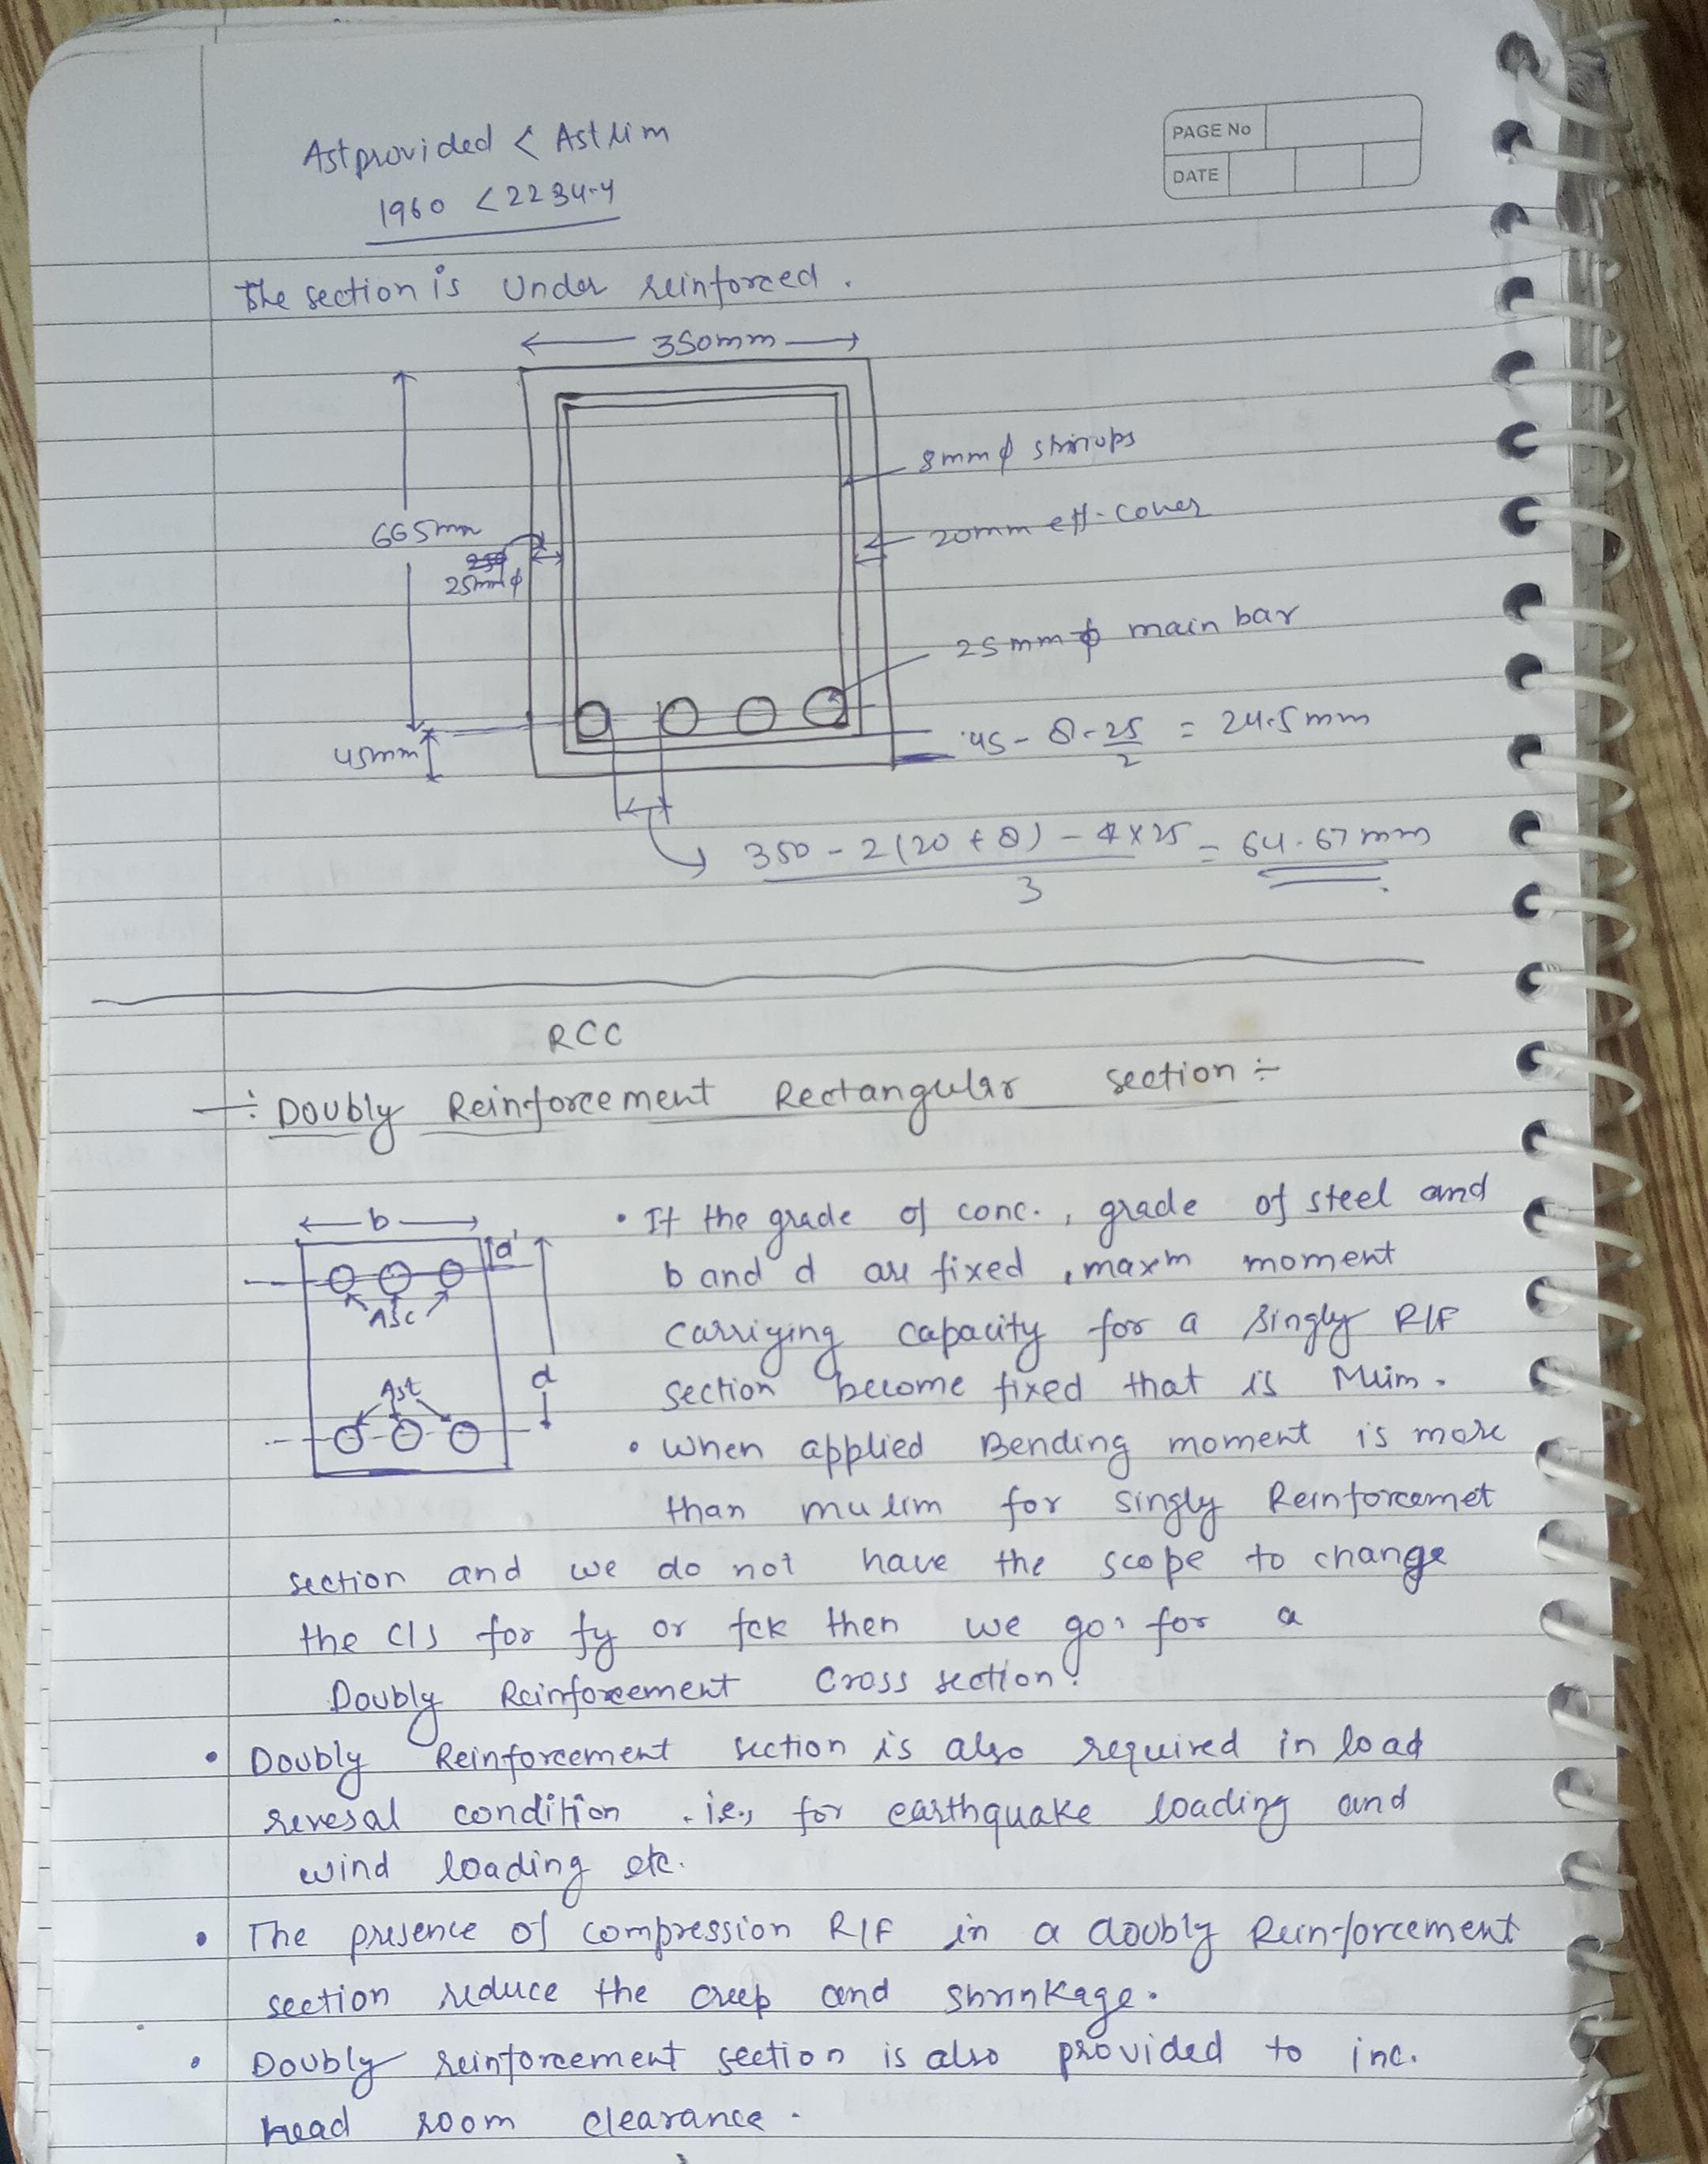 PAGE No
DATE
Ast provided < Ast lim
1960 < 2234.4
The section is Under reinforced.
350mm
8mm ϕ stirrups
665mm
20mm eff. cover
25mm ϕ
25mm ϕ main bar
45mm
45 - 8 - 25/2 = 24.5mm
350 - 2(20 + 8) - 4x25 / 3 = 64.67mm
RCC
÷ Doubly Reinforcement Rectangular section ÷
b
d'
Asc
d
Ast
• If the grade of conc., grade of steel and
b and d are fixed, maxm moment
carriying capacity for a singly R/F
section become fixed that is Mlim.
• When applied Bending moment is more
than mulim for singly Reinforcemet
section and we do not have the scope to change
the C/S for fy or fck then we go for a
Doubly Reinforcement Cross section.
• Doubly Reinforcement section is also required in load
revesal condition . ie., for earthquake loading and
wind loading etc.
• The presence of compression R/F in a doubly Reinforcement
section reduce the creep and shrinkage.
• Doubly reinforcement section is also provided to inc.
head room clearance.